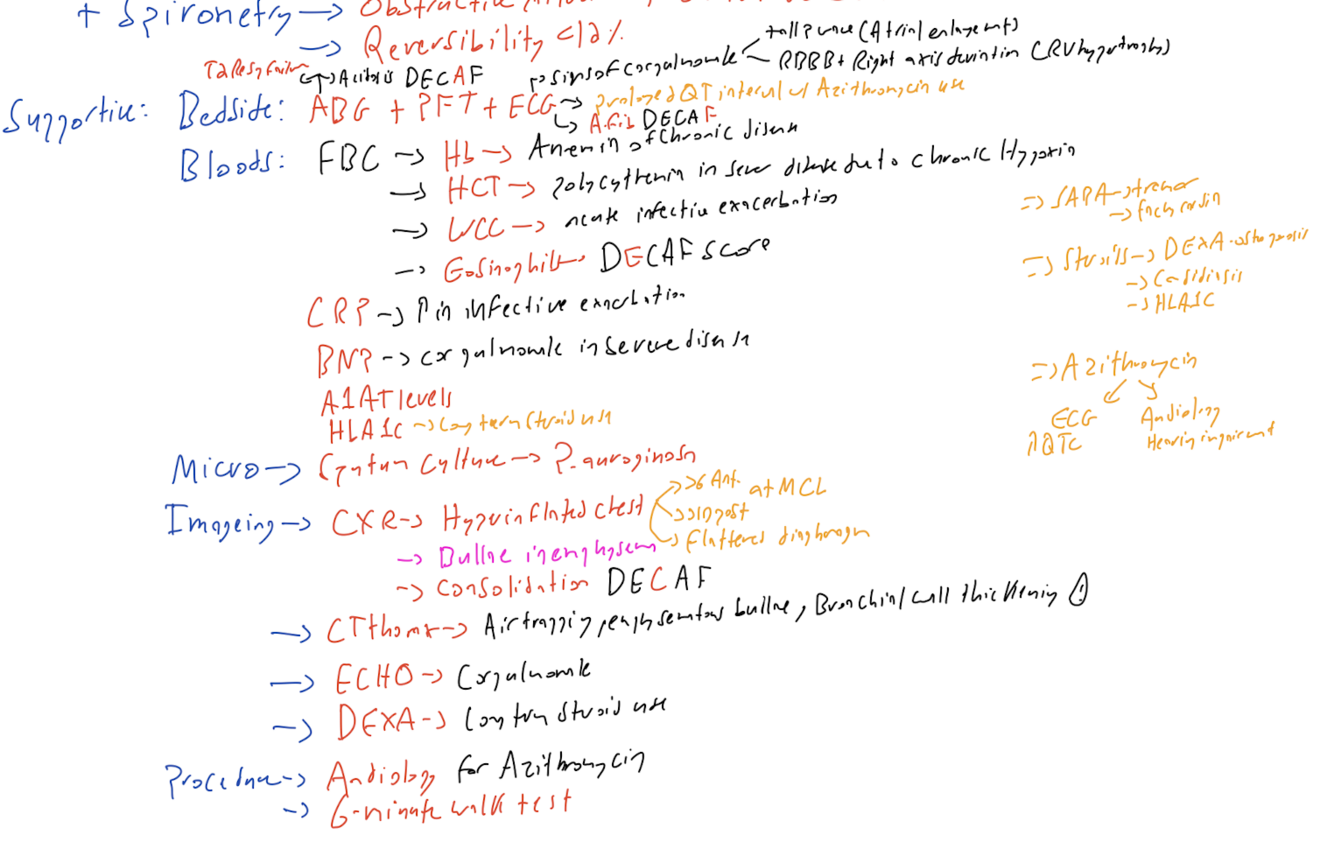 + Spirometry →
→ Reversibility <12%
tall P wave (Atrial enlargement)
T2 Resp failure
↳ Acidosis DECAF
→ signs of cor pulmonale
RBBB + Right axis deviation (RV hypertrophy)
Supportive: Bedside: ABG + PFT + ECG → prolonged QT interval w/ Azithromycin use
↳ A.Fib DECAF
Bloods: FBC → Hb → Anemia of chronic disease
→ HCT → polycythemia in sever disease due to chronic Hypoxia
→ WCC → acute infective exacerbation
→ Eosinophils → DECAF score
CRP → ↑ in infective exacerbation
BNP → cor pulmonale in severe disease
A1AT levels
HbA1c → Long term steroid use
⇒ SABA → tremor
→ tachycardia
⇒ Steroids → DEXA - osteoporosis
→ Candidiasis
→ HbA1c
⇒ Azithromycin
ECG Audiology
↑QTc Hearing impairment
Micro → Sputum Culture → P. auroginosa
Imageing → CXR → Hyperinflated chest
>6 Ant. at MCL
>10 post
Flattened diaphragm
→ Bullae in emphysem
→ Consolidation DECAF
→ CT thorax → Air trapping, emphysematous bullae, Bronchial wall thickening
→ ECHO → Cor pulmonale
→ DEXA → Long term steroid use
Procedure → Audiology for Azithromycin
→ 6-minute walk test